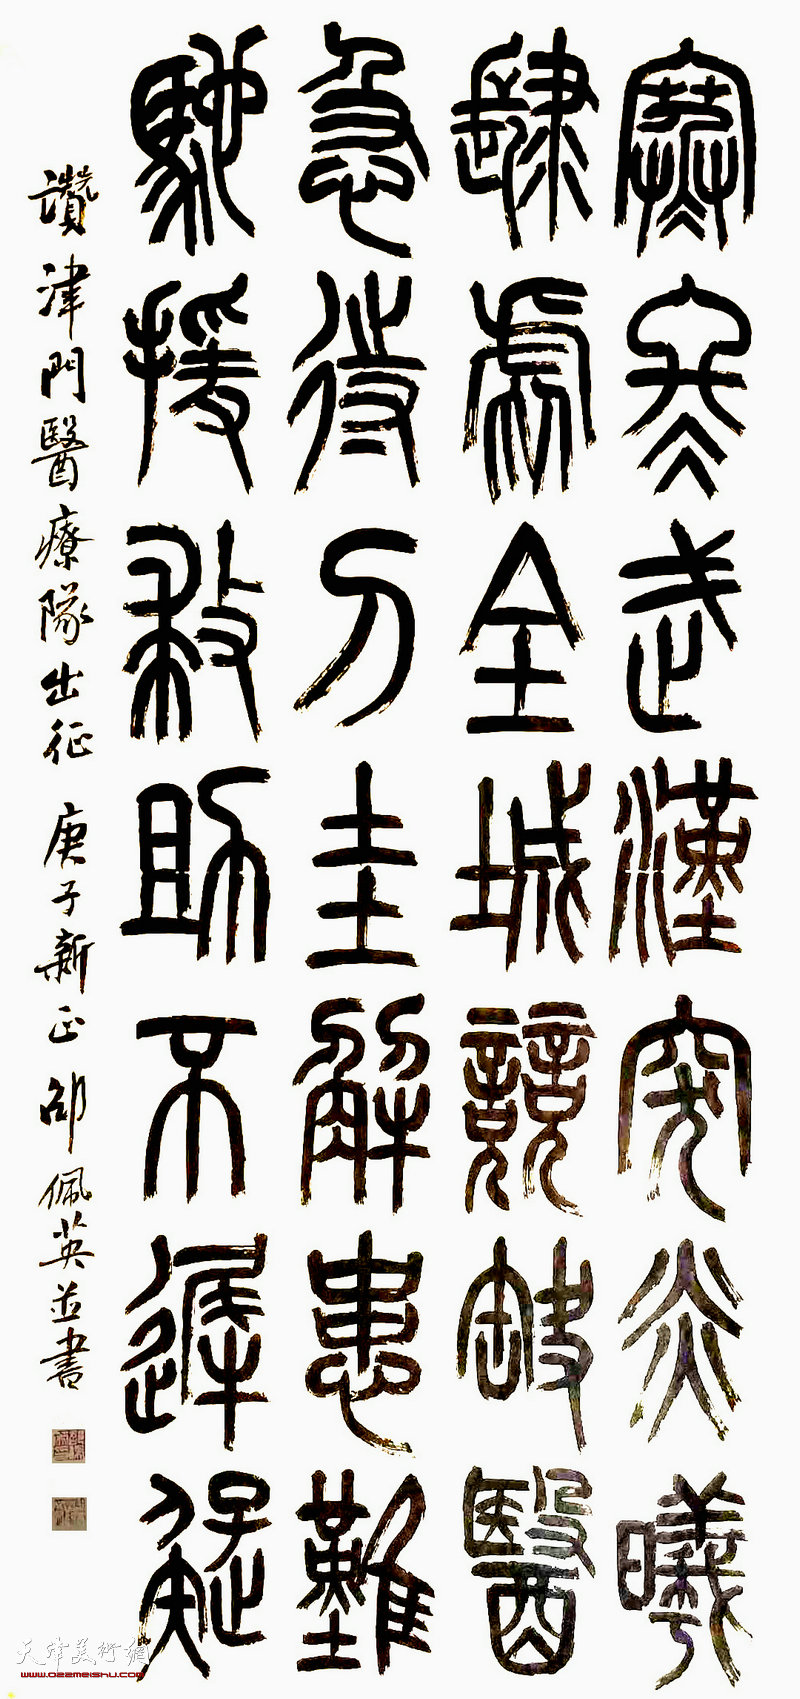 寒冬武漢突炎曦
肆虐全城競缺醫
急待刀圭解患難
馳援救助不遲疑
讚津門醫療隊出征 庚子新正 邵佩英並書
天津美術網
www.022meishu.com